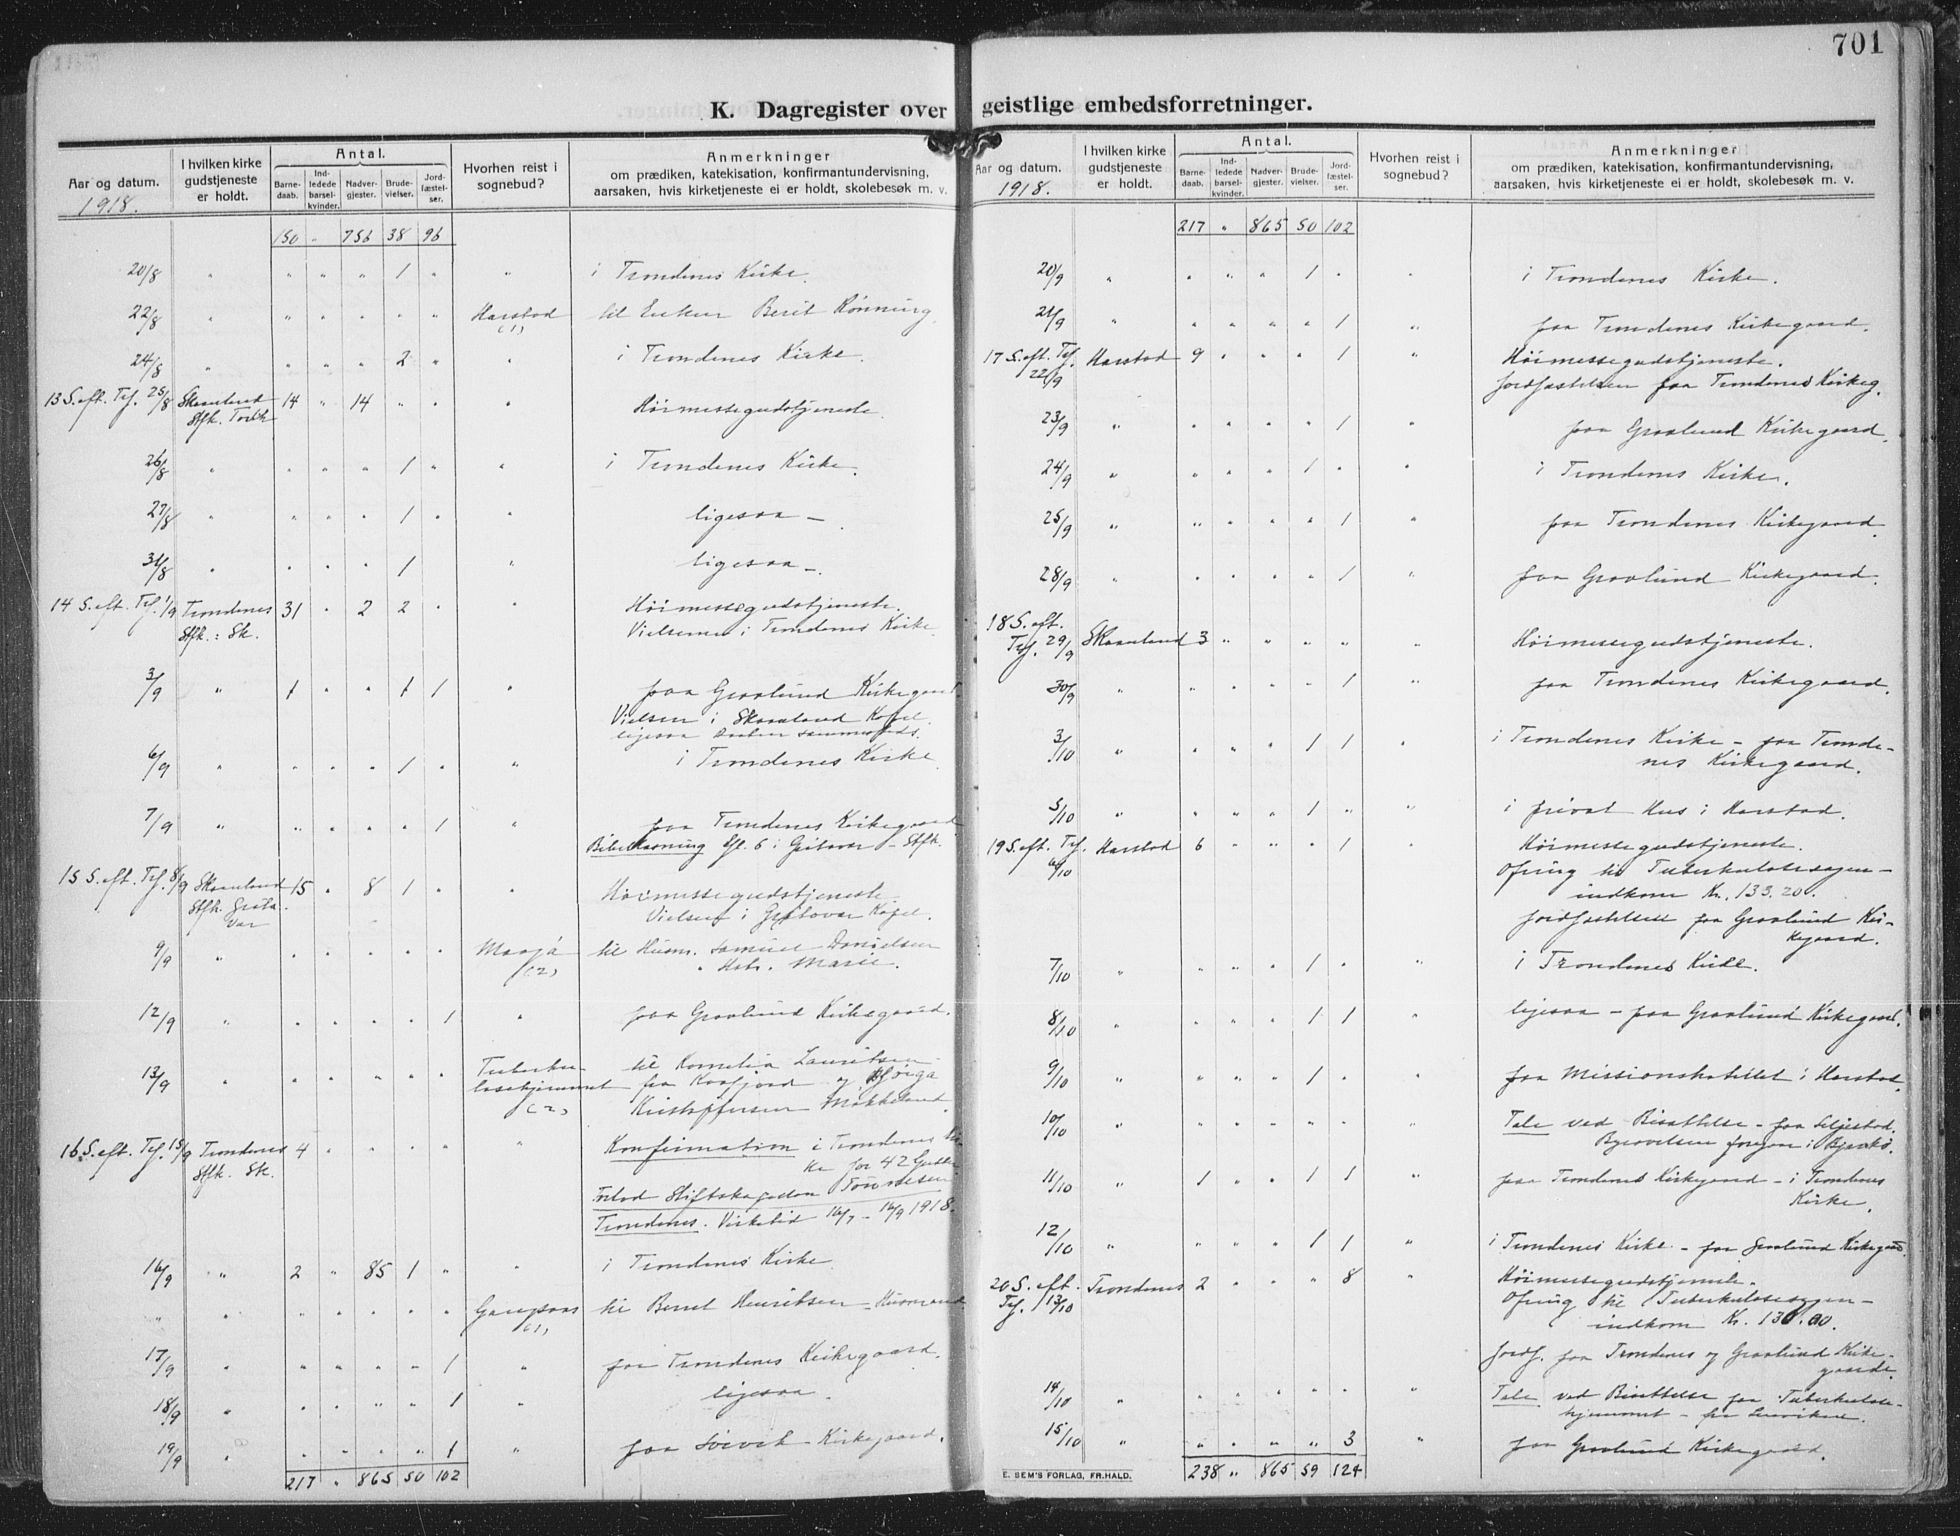 701
K. Dagregister over geistlige embedsforretninger.
Aar og datum.
1918.
I hvilken kirke gudstjeneste er holdt.
Antal.
Barnedaab.
Indledede barselkvinder.
Nadvergjester.
Brudevielser.
Jordfæstelser.
Hvorhen reist i sognebud?
Anmerkninger
om prædiken, katekisation, konfirmantundervisning,
aarsaken, hvis kirketjeneste ei er holdt, skolebesøk m. v.
150 " 756 38 96
20/8 " " " " 1 " " i Trondenes Kirke.
22/8 " " " " " " Harstad (1) til Berit Rønning
24/8 " " " " 2 " " i Trondenes Kirke.
13 S. eft. Trf. 25/8 Skaanland 14 " 14 " " " Höimessegudstjeneste.
Stfk.
26/8 " " " " 1 " " i Trondenes Kirke.
27/8 " " " " 1 " " ligesaa –
31/8 " " " " 1 " ligesaa –
14 S. eft. Trf. 1/9 Trondenes 31 " 2 2 " " Höimessegudstjeneste.
Stfk.: Sk. Vielserne i Trondenes Kirke.
3/9 " 1 " " 1 1 " paa Graalund Kirkegaard
Vielsen i Skaanland Kapel.
ligesaa
6/9 " " " " 1 " " i Trondenes Kirke
7/9 " " " " " 1 " paa Trondenes Kirkegaard
Bibellæsning Kl. 6 i – Stfk.
15 S. eft. Trf. 8/9 Skaanland 15 " 8 1 " " Höimessegudstjeneste.
Stfk. Vielsen i Kapel.
9/9 " " " " " " (2) til Husm. Samuel Danielsen
" Hstr. Marie.
12/9 " " " " " 1 " paa Graalund Kirkegaard.
13/9 " " " " " " Tuberkulosehjemmet (2) til Kornelia Lauritsen
fra Kaafjord og
Kristoffersen Møkkeland.
16 S. eft. Trf. 15/9 Trondenes 4 " " " " " Konfirmation i Trondenes Kirke
Stfk. Sk. for 42 Gutter
ved Stiftskapellan
Trondenes. Virketid 16/7 – 16/9 1918.
16/9 " 2 " 85 1 " " i Trondenes Kirke
" " Gangsaas (1) til Henriksen – Husmand
17/9 " " " " " 1 " paa Trondenes Kirkegaard.
18/9 " " " " " 1 " ligesaa.
19/9 " " " " " 1 " paa Sörvik Kirkegaard.
217 " 865 50 102
Aar og datum.
1918.
I hvilken kirke gudstjeneste er holdt.
Antal.
Barnedaab.
Indledede barselkvinder.
Nadvergjester.
Brudevielser.
Jordfæstelser.
Hvorhen reist i sognebud?
Anmerkninger
om prædiken, katekisation, konfirmantundervisning,
aarsaken, hvis kirketjeneste ei er holdt, skolebesøk m. v.
217 " 865 50 102
20/9 " " " " 1 " " i Trondenes Kirke.
21/9 " " " " " 1 " paa Trondenes Kirkegaard.
17 S. eft. Trf. 22/9 Harstad 9 " " " 1 " Höimessegudstjeneste.
Jordfæstelsen paa Trondenes Kirkeg.
23/9 " " " " " 1 " paa Graalund Kirkegaard.
24/9 " " " " 1 " " i Trondenes Kirke.
25/9 " " " " " 1 " paa Trondenes Kirkegaard
28/9 " " " " " 1 " paa Graalund Kirkegaard.
18 S. eft. Trf. 29/9 Skaanland 3 " " " " " Höimessegudstjeneste.
30/9 " " " " " 1 " paa Trondenes Kirkegaard.
3/10 " " " " 1 1 " i Trondenes Kirke – paa Trondenes Kirkegaard.
5/10 " " " " 1 " " i privat Hus i Harstad.
19 S. eft. Trf. 6/10 Harstad 6 " " " 1 " Höimessegudstjeneste.
Ofring til Tuberkulosesagen –
indkom Kr. 133.20.
Jordfæstelse paa Graalund Kirkegaard.
7/10 " " " " 1 " " i Trondenes Kirke.
8/10 " " " " 1 1 " ligesaa – paa Graalund Kirkegaard.
9/10 " " " " 1 " " paa Missionshotellet i Harstad.
10/10 " " " " " " " Tale ved Bisættelse – paa Seljestad.
Begravelsen foregaar i Bjarkö.
11/10 " 1 " " 1 1 " paa Trondenes Kirkegaard – i Trondenes
Kirke.
12/10 " " " " 1 1 " i Trondenes Kirke – paa Graalund Kirkegaard.
20 S. eft. Trf. 13/10 Trondenes 2 " " " 8 " Höimessegudstjeneste.
Ofring til Tuberkulosesagen –
indkom Kr. 130.00.
Jordf. paa Trondenes og Graalund Kirkegaarde.
14/10 " " " " " " " Tale ved Bisættelse paa Tuberkulosehjemmet –
15/10 " " " " " 3 " paa Graalund Kirkegaard.
238 " 865 59 124
E. SEM'S FORLAG, FR.HALD.